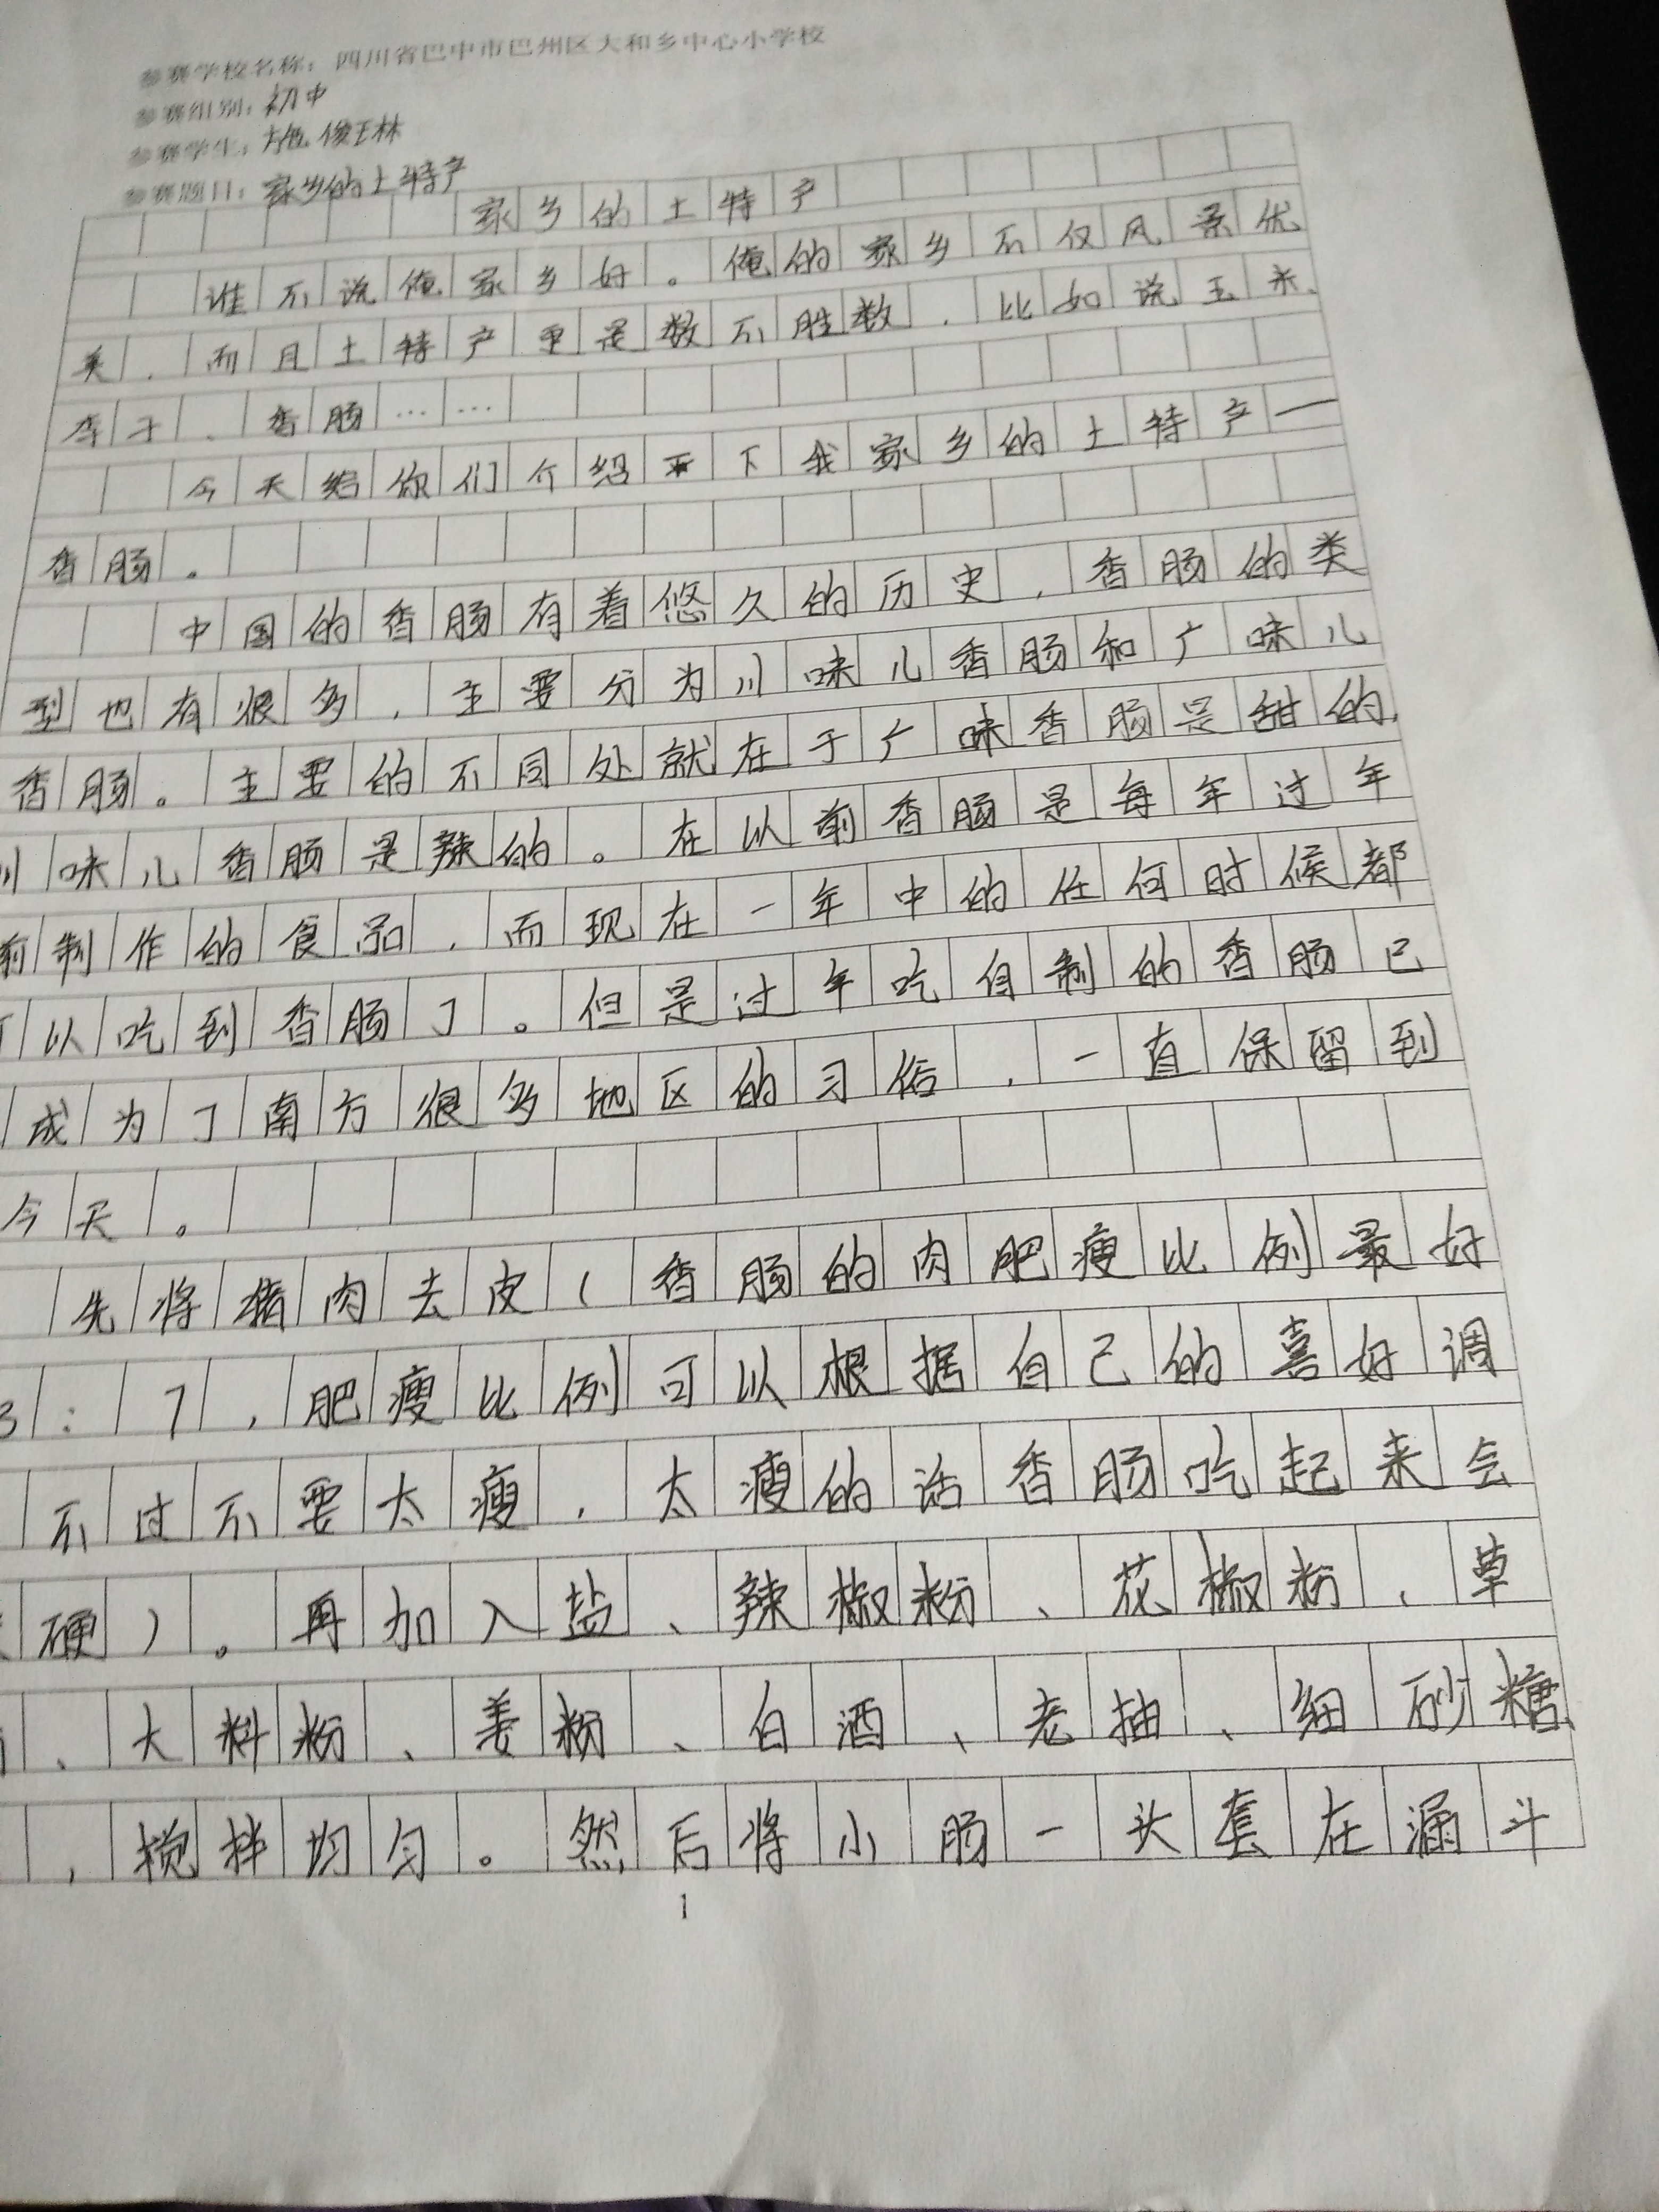 参赛学校名称：四川省巴中市巴州区大和乡中心小学校
参赛组别：初中
参赛学生：施俊林
参赛题目：家乡的土特产
家乡的土特产
谁不说俺家乡好。俺的家乡不仅风景优
美，而且土特产更是数不胜数，比如说玉米、
李子、香肠……
今天给你们介绍一下我家乡的土特产一
香肠。
中国的香肠有着悠久的历史，香肠的类
型也有很多，主要分为川味儿香肠和广味儿
香肠。主要的不同处就在于广味香肠是甜的，
川味儿香肠是辣的。在以前香肠是每年过年
前制作的食品，而现在一年中的任何时候都
可以吃到香肠了。但是过年吃自制的香肠已
成为了南方很多地区的习俗，一直保留到
今天。
先将猪肉去皮（香肠的肉肥瘦比例最好
3：7，肥瘦比例可以根据自己的喜好调
不过不要太瘦，太瘦的话香肠吃起来会
硬）。再加入盐、辣椒粉、花椒粉、草
、大料粉、姜粉、白酒、老抽、细砂糖、
，搅拌均匀。然后将小肠一头套在漏斗
1